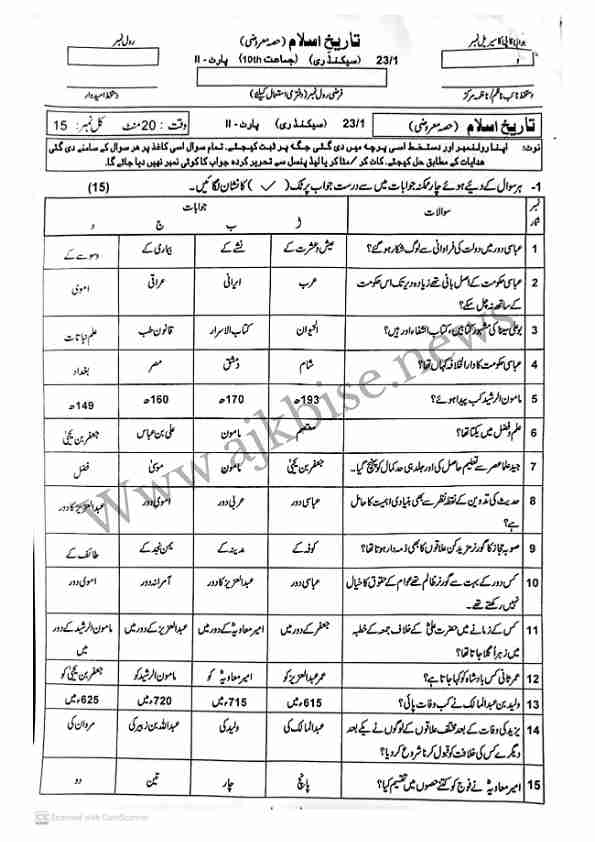 رول نمبر
تاریخ اسلام (حصہ معروضی)
جوابی کاپی کا سیریل نمبر
23/1 (سیکنڈری) (جماعت 10th) پارٹ - II
دستخط امیدوار
فرضی رول نمبر (دفتری استعمال کیلئے)
دستخط نائب ناظم / ناظمہ مرکز
تاریخ اسلام (حصہ معروضی) 23/1 (سیکنڈری) پارٹ - II وقت : 20 منٹ کل نمبر: 15
نوٹ: اپنا رولنمبر اور دستخط اسی پرچہ میں دی گئی جگہ پر ثبت کیجئے۔ تمام سوال اسی کاغذ پر ھر سوال کے سامنے دی گئی
ھدایات کے مطابق حل کیجئے۔ کاٹ کر / مٹا کر یا لیڈ پنسل سے تحریر کردہ جواب کا کوئی نمبر نہیں دیا جائے گا۔
1- ہر سوال کے دیئے ہوئے چار ممکنہ جوابات میں سے درست جواب پر ٹِک (✓) کا نشان لگائیں۔ (15)
نمبر شمار سوالات جوابات
ا ب ج د
1 عباسی دور میں دولت کی فراوانی سے لوگ شکار ہو گئے؟ عیش و عشرت کے نشے کے بیماری کے وسوسے کے
2 عباسی حکومت کے اصل بانی تھے زیادہ دیر تک اس حکومت
کے ساتھ نہ چل سکے؟ عرب ایرانی عراقی اموی
3 بو علی سینا کی مشہور کتابیں، کتاب الشفاء اور ہیں؟ الحیوان کتاب الاسرار قانون طب علم نباتات
4 عباسی حکومت کا دارالخلافہ کہاں تھا؟ شام دمشق مصر بغداد
5 مامون الرشید کب پیدا ہوئے؟ 193ھ 170ھ 160ھ 149ھ
6 علم و فضل میں یکتا تھا؟ معتصم مامون علی بن عباس جعفر بن یحییٰ
7 جید علماء عصر سے تعلیم حاصل کی اور جلد ہی حد کمال کو پہنچ گیا۔ جعفر بن یحییٰ مامون موسیٰ فضل
8 حدیث کی تدوین کے نقطہ نظر سے بھی بنیادی اہمیت کا حامل
ہے؟ عباسی دور عربی دور اموی دور عبدالعزیز کا دور
9 صوبہ حجاز کا گورنر مزید کن علاقوں کا بھی ذمہ دار ہوتا تھا؟ کوفہ کے مدینہ کے یمن نجد کے طائف کے
10 کس دور کے بہت سے گورنر ظالم تھے عوام کے حقوق کا خیال
نہیں رکھتے تھے۔ عباسی دور عبدالعزیز کا دور آمرانہ دور اموی دور
11 کس کے زمانے میں حضرت علیؓ کے خلاف جمعہ کے خطبہ
میں زہر اگلا جاتا تھا؟ جعفر کے دور میں امیر معاویہؓ کے دور میں عبدالعزیز کے دور میں مامون الرشید کے دور
میں
12 عمر ثانی کس بادشاہ کو کہا جاتا ہے؟ عمر عبدالعزیز کو امیر معاویہؓ کو مامون الرشید کو جعفر بن یحییٰ کو
13 ولید بن عبدالمالک نے کب وفات پائی؟ 615ء میں 715ء میں 720ء میں 625ء میں
14 یزید کی وفات کے بعد مختلف علاقوں کے لوگوں نے یکے بعد
دیگرے کس کی خلافت کو قبول کرنا شروع کر دیا؟ عبدالمالک کی ولید کی عبداللہ بن زبیر کی مروان کی
15 امیر معاویہؓ نے فوج کو کتنے حصوں میں تقسیم کیا؟ پانچ چار تین دو
www.ajkbise.news
CS Scanned with CamScanner